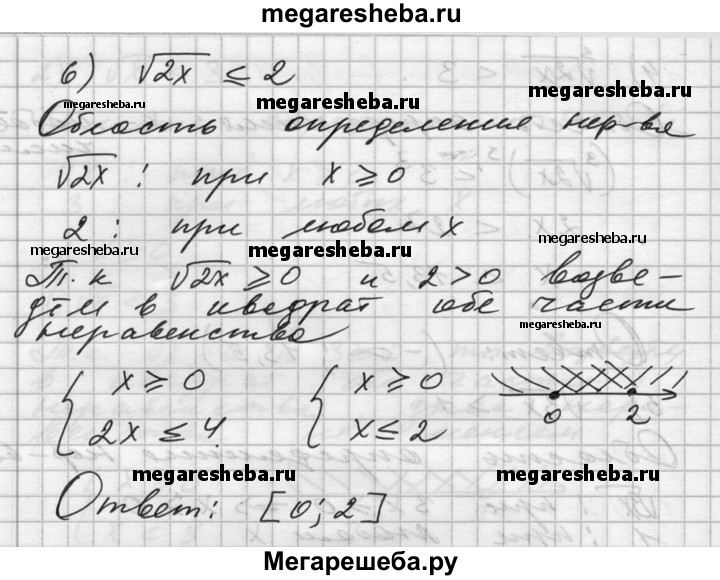 megaresheba.ru
6) √2x ≤ 2
megaresheba.ru
megaresheba.ru
megaresheba.ru
Область определения нер-вя
√2x : при x ⩾ 0
2 : при любом x
megaresheba.ru
megaresheba.ru
megaresheba.ru
Т. к √2x ⩾ 0 и 2 > 0 возве-
дём в квадрат обе части
неравенства
megaresheba.ru
{ x ⩾ 0 { x ⩾ 0
2x ≤ 4. x ≤ 2
0 2
megaresheba.ru
megaresheba.ru
Ответ: [0; 2]
Мегарешеба.ру